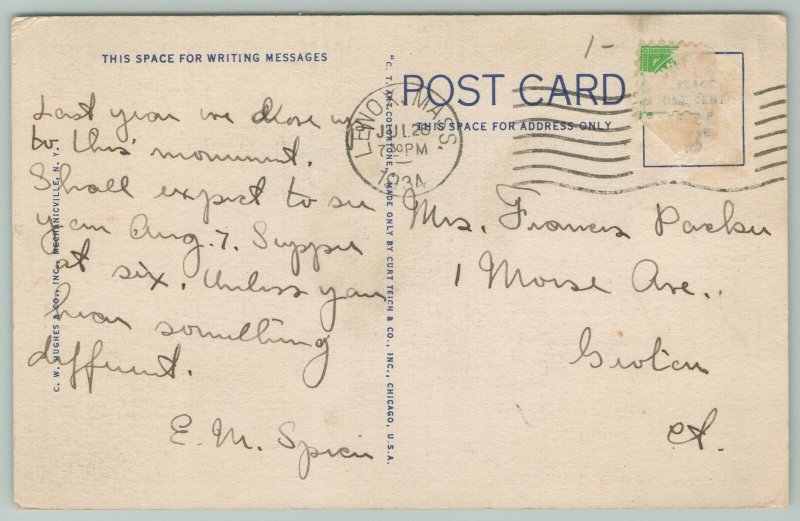 THIS SPACE FOR WRITING MESSAGES
Last year we drove up
to this monument.
Shall expect to see
you Aug. 7. Supper
at six. Unless you
hear something
different.
E. M. Spicer
C. W. HUGHES & CO., INC., MECHANICVILLE, N. Y.
"C. T. ART-COLORTONE" MADE ONLY BY CURT TEICH & CO., INC., CHICAGO, U.S.A.
1-
POST CARD
THIS SPACE FOR ADDRESS ONLY
LENOX, MASS.
JUL 26
7 30 PM
1934
PLACE
ONE CENT
Mrs. Frances Parker
1 Morse Ave.
Groton
Ct.